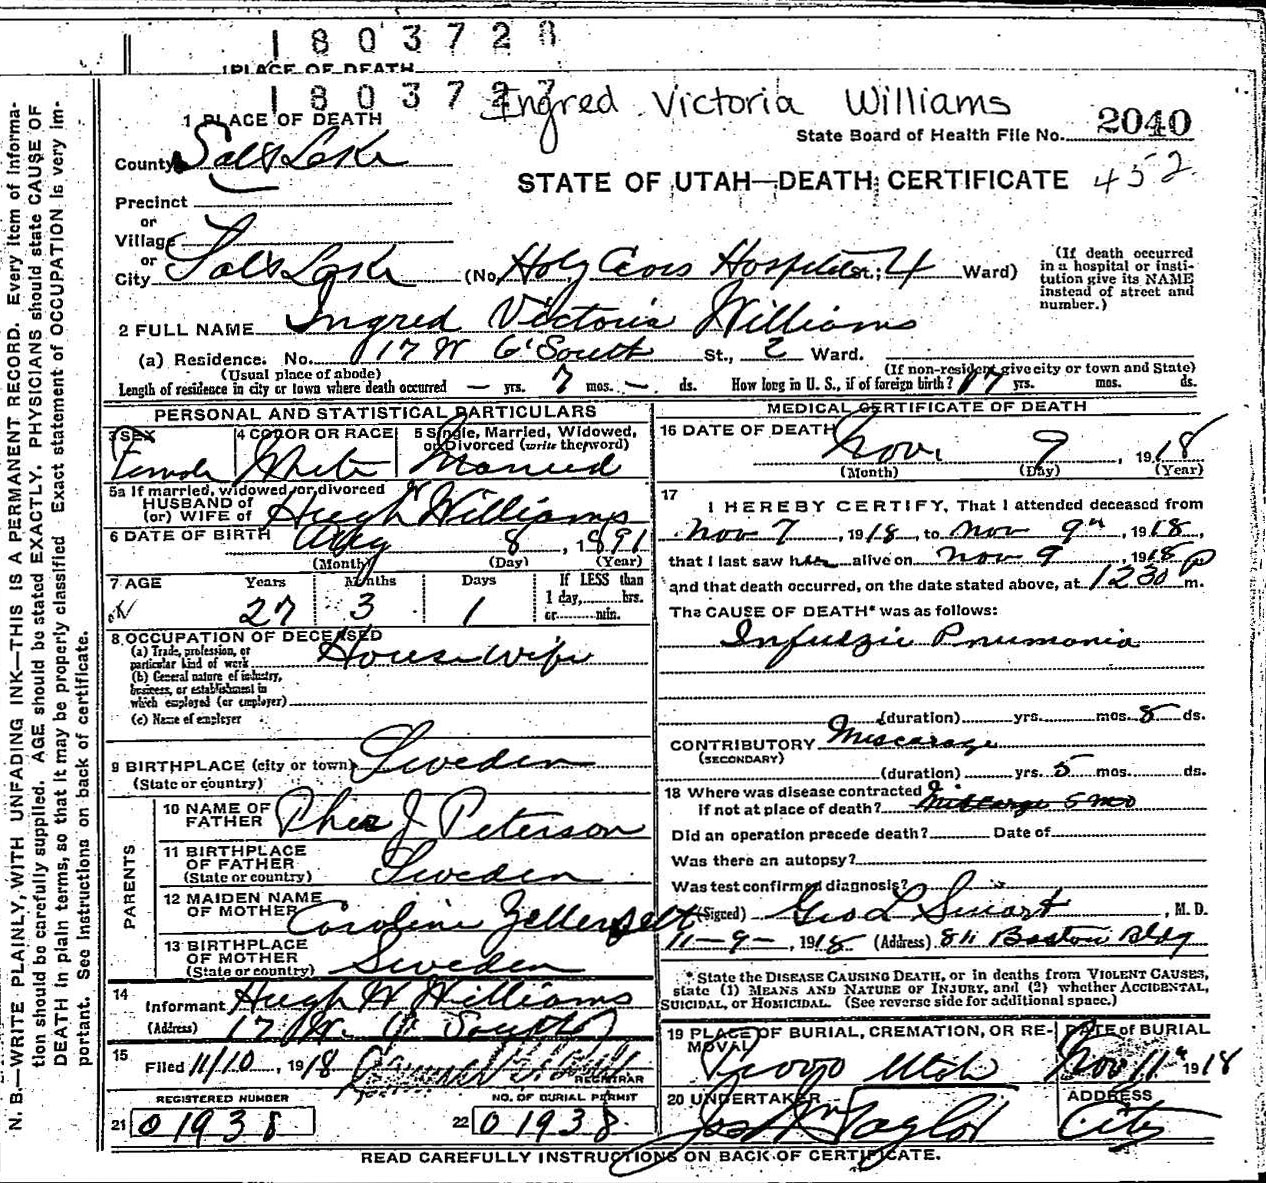 1 8 0 3 7 2 8
1 PLACE OF DEATH
1 8 0 3 7 2 7
Ingred Victoria Williams
1 PLACE OF DEATH
State Board of Health File No. 2040
County Salt Lake
STATE OF UTAH—DEATH CERTIFICATE 452
Precinct
or
Village
or
City Salt Lake (No. Holy Cross Hospital St.; 4 Ward)
(If death occurred in a hospital or insti-
tution give its NAME
instead of street and
number.)
2 FULL NAME Ingred Victoria Williams
(a) Residence. No. 17 W 6 South St., 2 Ward.
(Usual place of abode) (If non-resident give city or town and State)
Length of residence in city or town where death occurred — yrs. 7 mos. — ds. How long in U. S., if of foreign birth? 17 yrs. mos. ds.
PERSONAL AND STATISTICAL PARTICULARS
3 SEX Female
4 COLOR OR RACE White
5 Single, Married, Widowed, or Divorced (write the word) Married
5a If married, widowed, or divorced
HUSBAND of
(or) WIFE of Hugh W Williams
6 DATE OF BIRTH Aug 8, 1891
(Month) (Day) (Year)
7 AGE Years Months Days If LESS than
27 3 1 1 day,......hrs.
or......min.
8 OCCUPATION OF DECEASED
(a) Trade, profession, or
particular kind of work House wife
(b) General nature of industry,
business, or establishment in
which employed (or employer)
(c) Name of employer
9 BIRTHPLACE (city or town) Sweden
(State or country)
PARENTS
10 NAME OF
FATHER J Peterson
11 BIRTHPLACE
OF FATHER
(State or country) Sweden
12 MAIDEN NAME
OF MOTHER Caroline
13 BIRTHPLACE
OF MOTHER
(State or country) Sweden
14 Informant Hugh W Williams
(Address) 17 W. 6 South
15 Filed 11/10, 1918
REGISTRAR
REGISTERED NUMBER NO. OF BURIAL PERMIT
21 01938 22 01938
MEDICAL CERTIFICATE OF DEATH
16 DATE OF DEATH Nov. 9, 1918
(Month) (Day) (Year)
17 I HEREBY CERTIFY, That I attended deceased from
Nov 7, 1918, to Nov 9th, 1918,
that I last saw her alive on Nov 9, 1918
and that death occurred, on the date stated above, at 1230 P m.
The CAUSE OF DEATH* was as follows:
Infulzie Pnumonia
(duration) yrs. mos. 8 ds.
CONTRIBUTORY Miscarage
(SECONDARY)
(duration) yrs. 5 mos. ds.
18 Where was disease contracted
if not at place of death? Miscarge 5 mo
Did an operation precede death? Date of
Was there an autopsy?
Was test confirmed diagnosis?
(Signed) Geo L Smart, M. D.
11-9-, 1918 (Address) 811 Boston Bldg
* State the DISEASE CAUSING DEATH, or in deaths from VIOLENT CAUSES,
state (1) MEANS AND NATURE OF INJURY, and (2) whether ACCIDENTAL,
SUICIDAL, or HOMICIDAL. (See reverse side for additional space.)
19 PLACE OF BURIAL, CREMATION, OR RE-
MOVAL Provo Utah
DATE of BURIAL
Nov 11th 1918
20 UNDERTAKER Jos Wm Taylor
ADDRESS
City
READ CAREFULLY INSTRUCTIONS ON BACK OF CERTIFICATE.
N. B.—WRITE PLAINLY, WITH UNFADING INK—THIS IS A PERMANENT RECORD. Every item of informa-
tion should be carefully supplied. AGE should be stated EXACTLY. PHYSICIANS should state CAUSE OF
DEATH in plain terms, so that it may be properly classified. Exact statement of OCCUPATION is very im-
portant. See instructions on back of certificate.